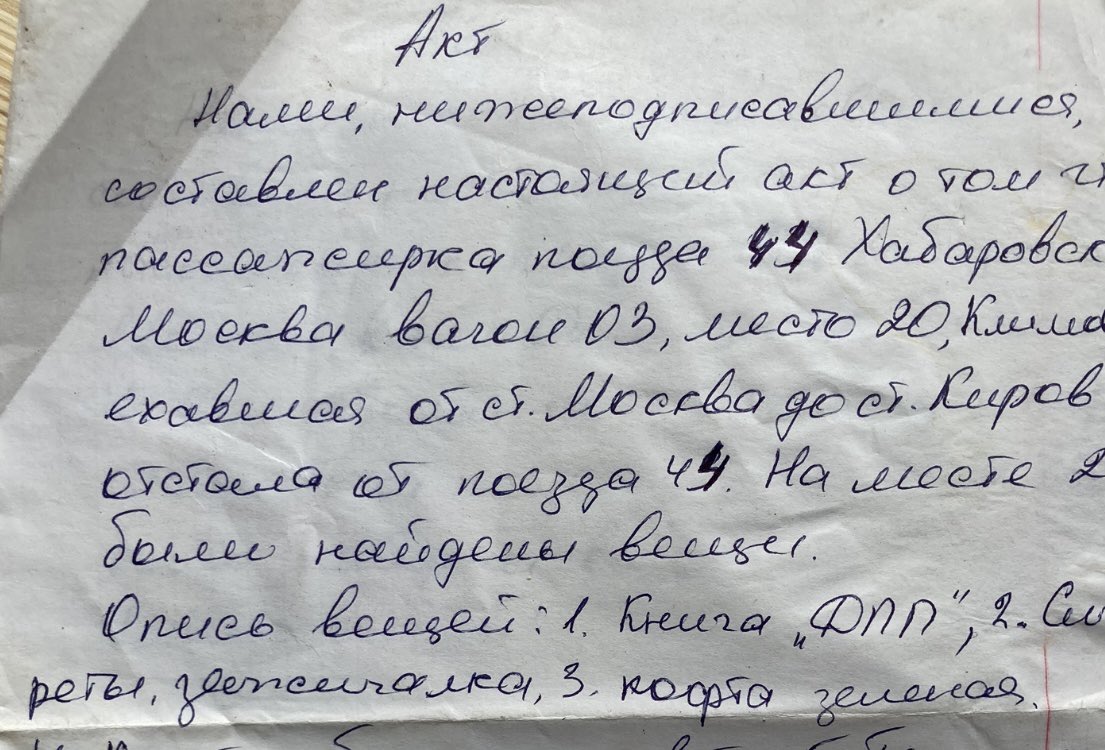 Акт
Нами, нижеподписавшимися,
составлен настоящий акт о том
пассажирка поезда 44 Хабаровск
Москва вагон 03, место 20,
ехавшая от ст. Москва до ст. Киров
отстала от поезда 44. На месте
были найдены вещи.
Опись вещей: 1. Книга „ДПП“, 2.
реты, зажигалка, 3. кофта зеленая.